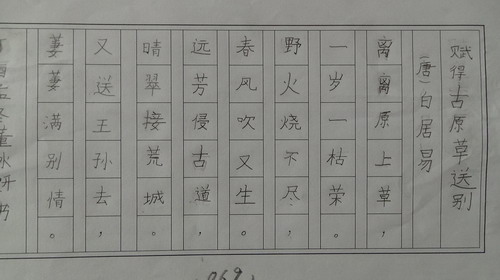 赋得古原草送别
(唐)白居易
离离原上草，
一岁一枯荣。
野火烧不尽，
春风吹又生。
远芳侵古道，
晴翠接荒城。
又送王孙去，
萋萋满别情。
069